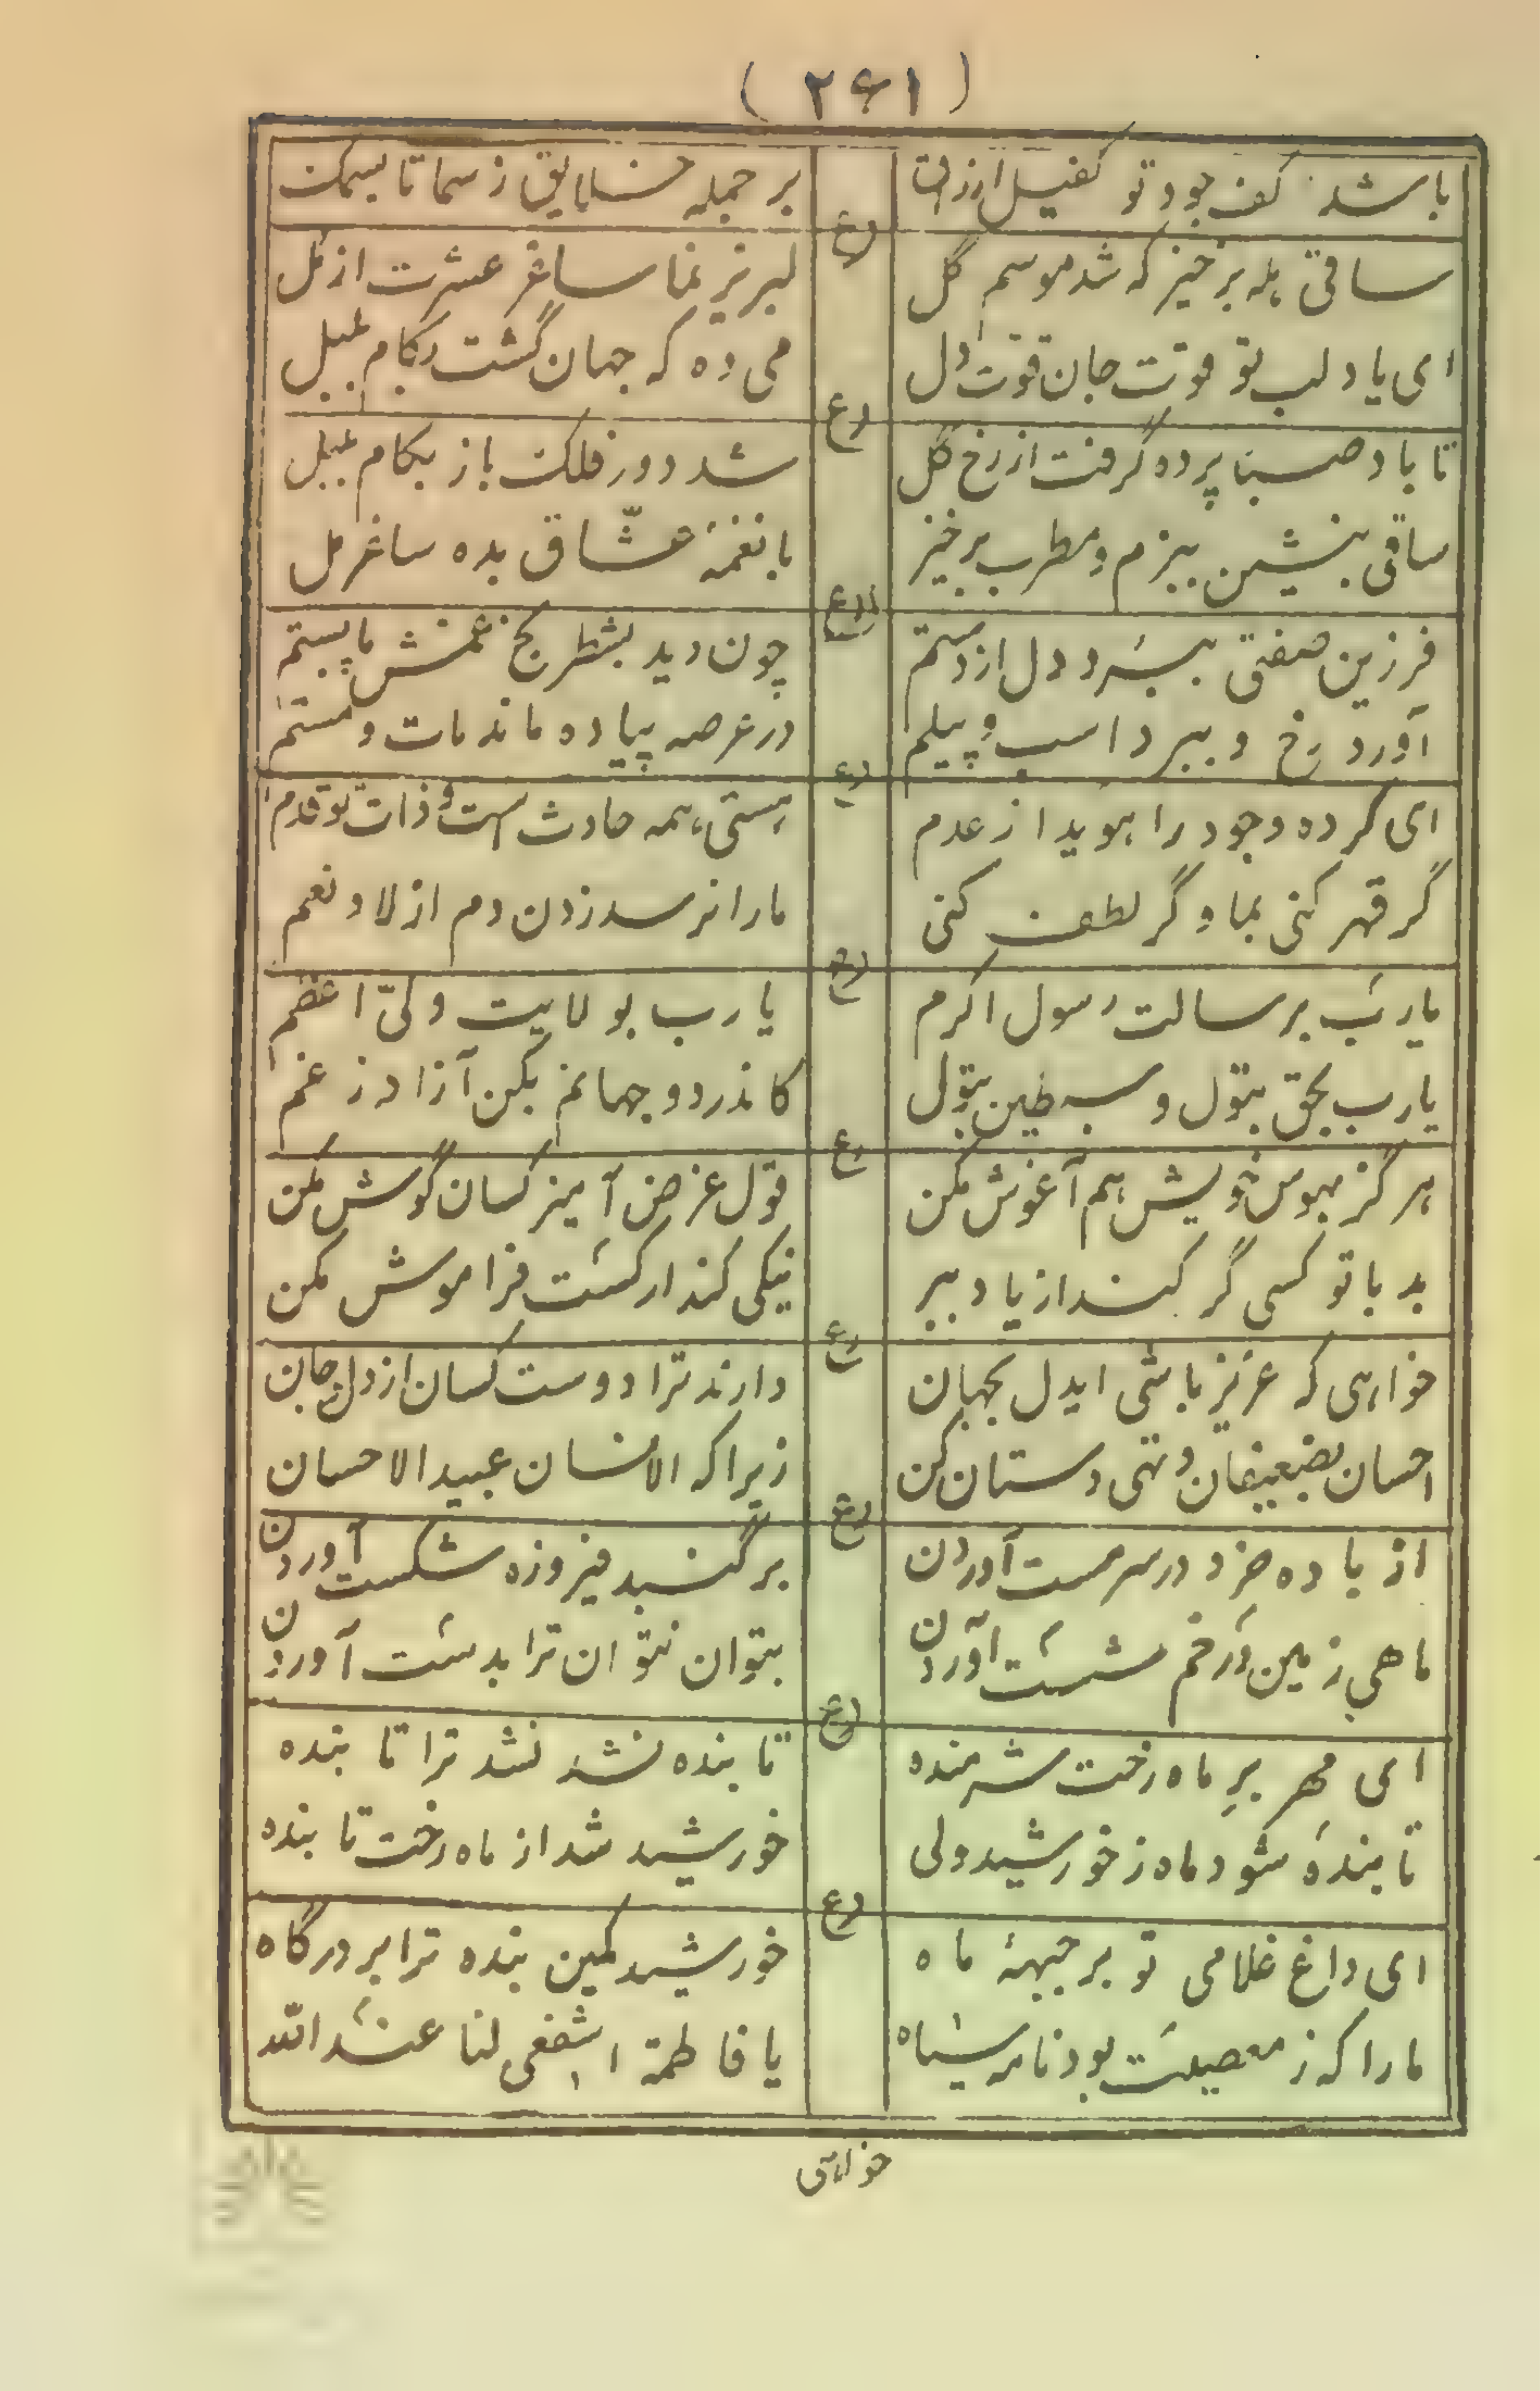 (۲۶۱)
باشد کف جود تو کفیل ارزاق بر جمله خلایق ز سما تا بسمک
رع
ساقی هله برخیز که شد موسم گل لبریز نما ساغر عشرت از مل
ای یاد لب تو قوت جان قوت دل می ده که جهان گشت بکام بلبل
رع
تا باد صبا پرده گرفت از رخ گل شد دور فلک باز بکام بلبل
ساقی بنشین ببزم و مطرب برخیز با نغمهٔ عشّاق بده ساغر مل
رع
فرزین صفتی ببرد دل از دستم چون دید بشطرنج غمش پابستم
آورد رخ و ببرد اسب و پیلم در عرصه پیاده ماند مات و مستم
رع
ای کرده وجود را هویدا ز عدم هستی همه حادث است و ذات تو قدم
گر قهر کنی بما و گر لطف کنی ما را نرسد زدن دم از لا و نعم
رع
یا رب برسالت رسول اکرم یا رب بولایت ولیّ اعظم
یا رب بحق بتول و سبطین بتول کاندر دو جهانم بکن آزاد ز غم
رع
هرگز بهوس خویش هم آغوش مکن قول غرض آمیز کسان گوش مکن
بد با تو کسی گر کند از یاد ببر نیکی کند ار کست فراموش مکن
رع
خواهی که عزیز باشی ایدل بجهان دارند ترا دوست کسان از دل و جان
احسان بضعیفان و تهی دستان کن زیرا که الانسان عبید الاحسان
رع
از باده خرد در سر مست آوردن بر گنبد فیروزه شکست آوردن
ماهی زمین در خم شست آوردن بتوان نتوان ترا بدست آوردن
رع
ای مهر برِ ماه رخت شرمنده تا بنده نشد نشد ترا تابنده
تابنده شود ماه ز خورشید ولی خورشید شد از ماه رخت تابنده
رع
ای داغ غلامی تو بر جبههٔ ماه خورشید کمین بنده ترا بر درگاه
ما را که ز معصیت بود نامه سیاه یا فاطمة اشفعی لنا عند الله
خواهی